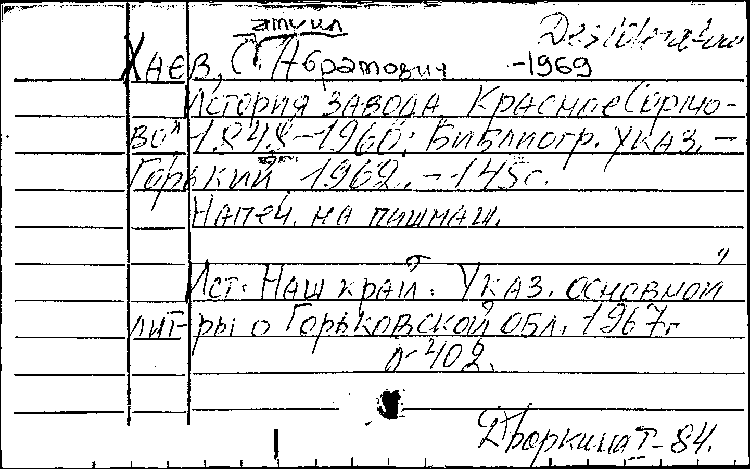 Desiderata
Хаев, С. Абрамович -1969
История завода "Красное Сормо-
во" 1848-1960: Библиогр. указ. -
Горький, 1962. - 145с.
Напеч. на пишмаш.
Ист: Наш край: Указ. основной
лит-ры о Горьковской обл. 1967г
№ 402.
Дворкина Т-84.